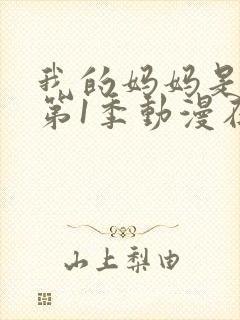 我的妈妈是
第1季動漫在
山上梨由